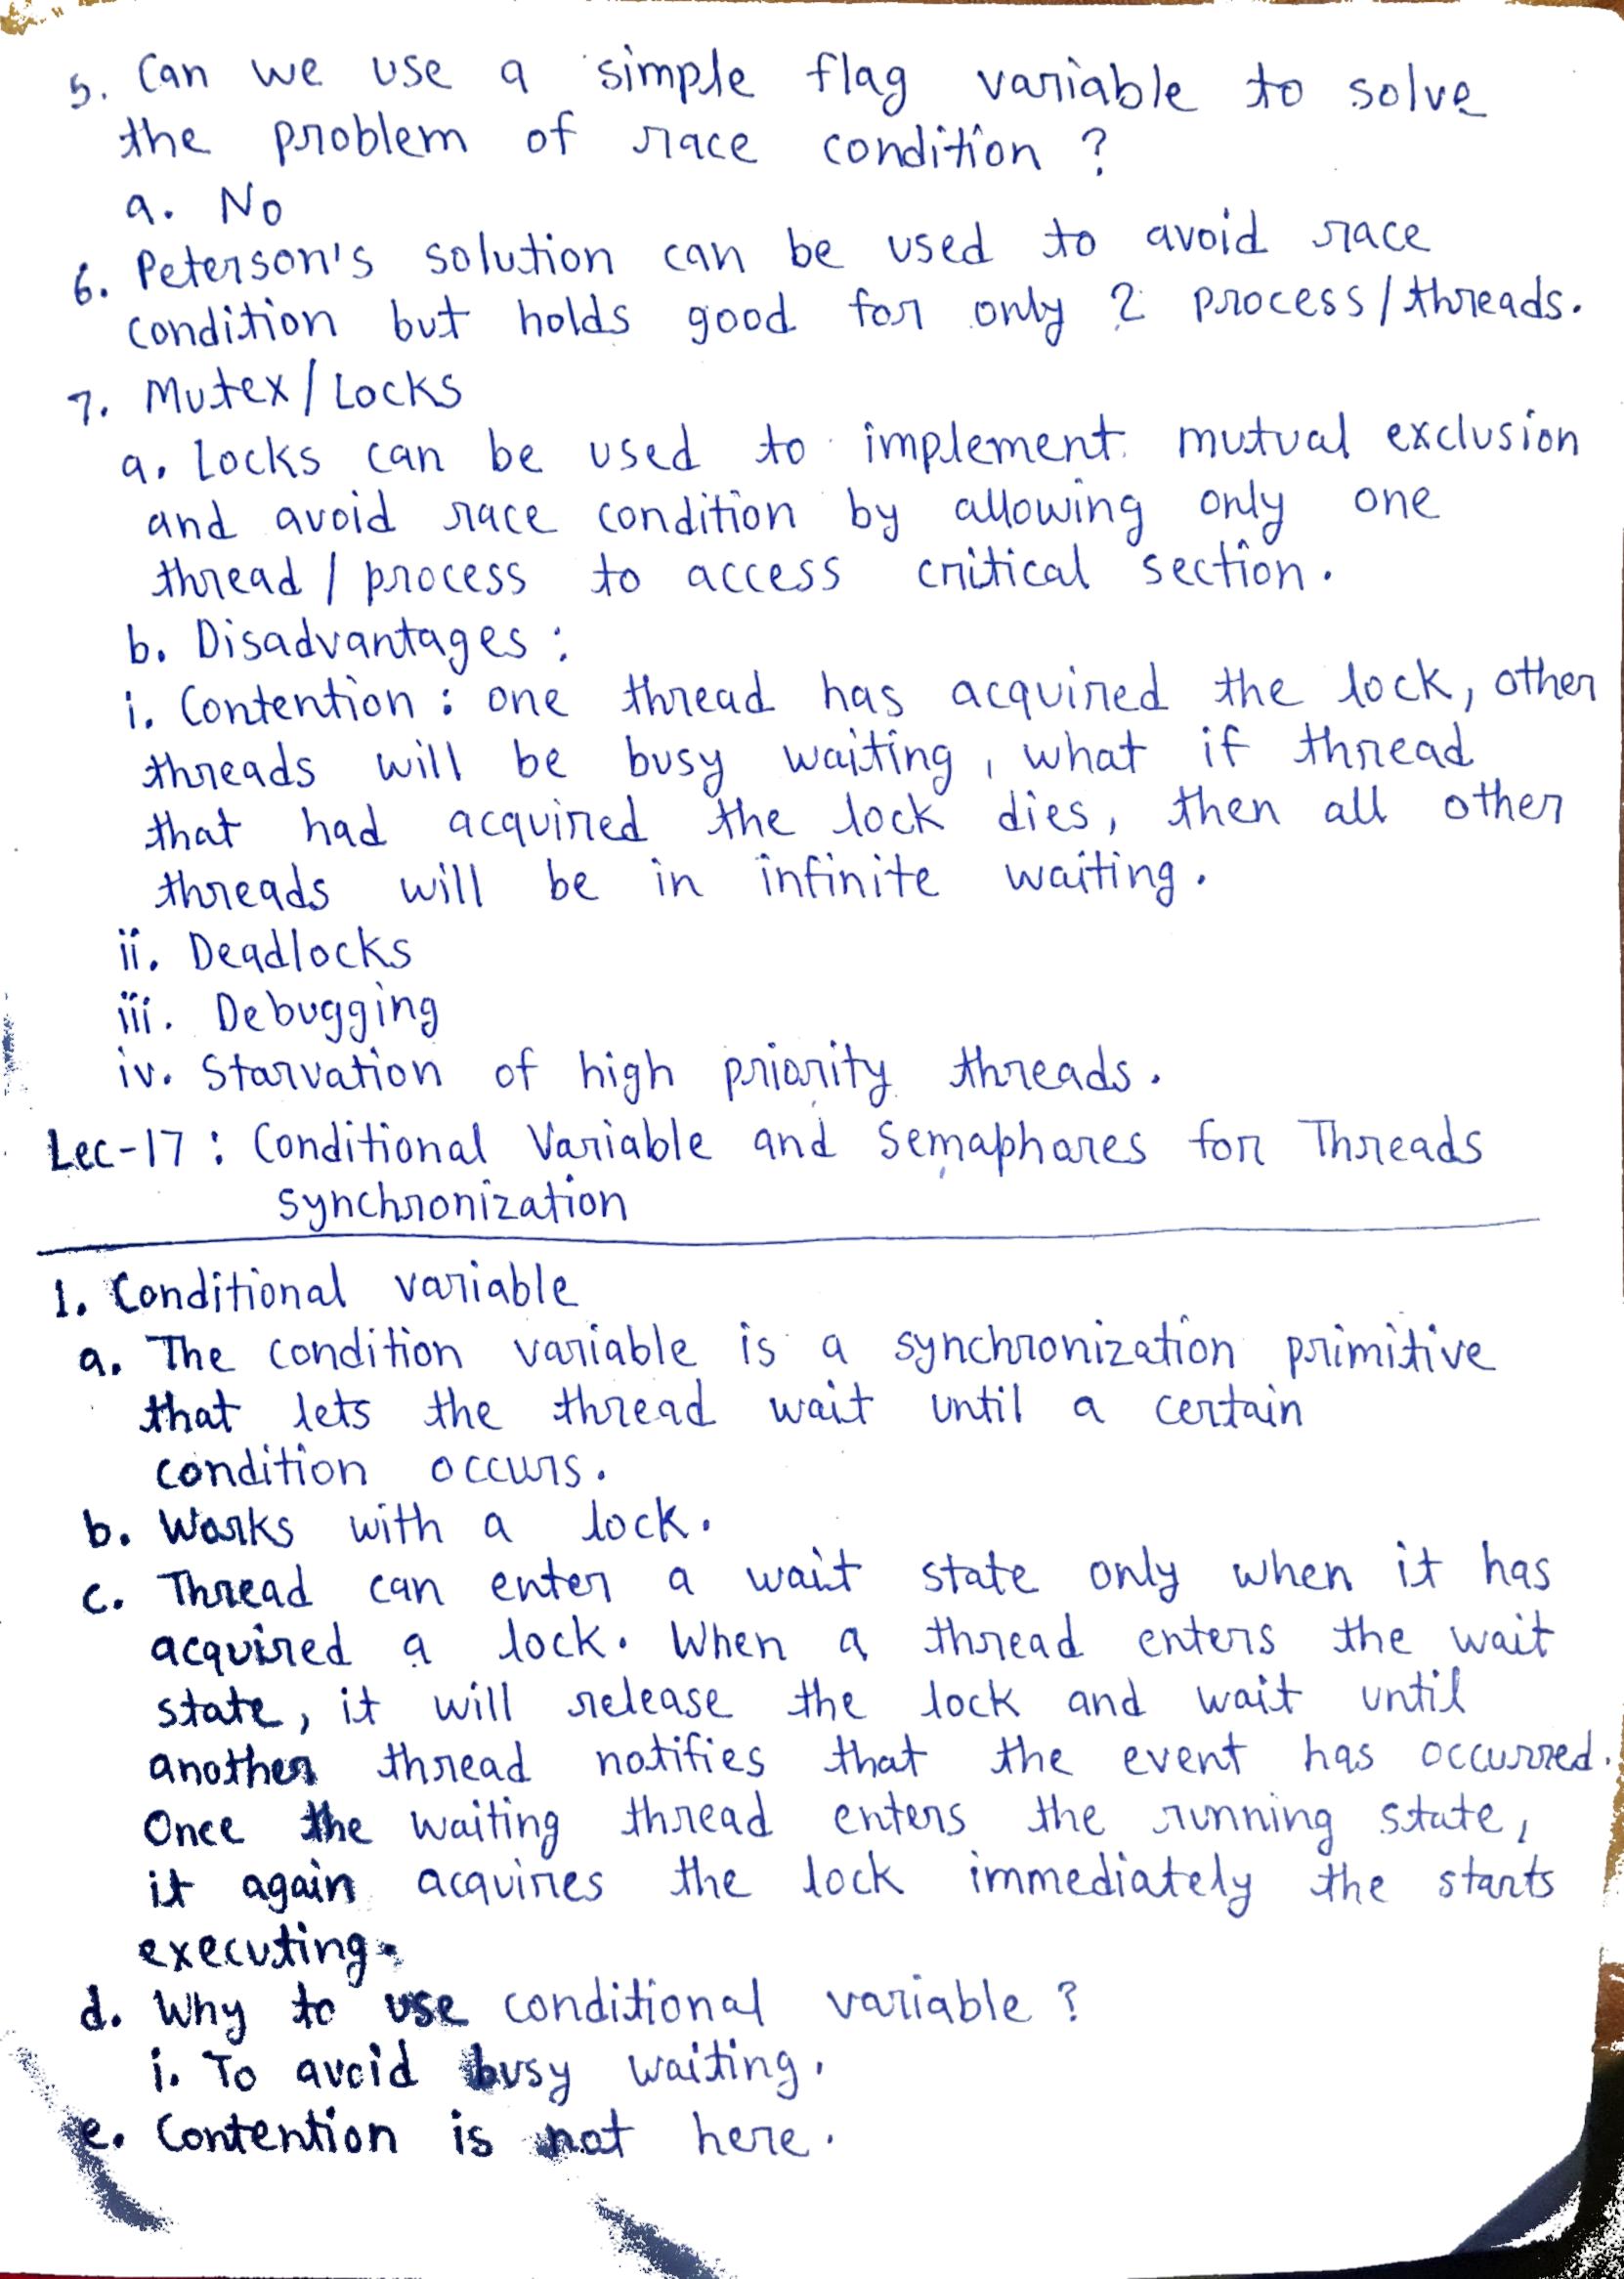 5. Can we use a simple flag variable to solve
the problem of race condition ?
a. No
6. Peterson's solution can be used to avoid race
condition but holds good for only 2 process/threads.
7. Mutex/Locks
a. Locks can be used to implement mutual exclusion
and avoid race condition by allowing only one
thread / process to access critical section.
b. Disadvantages :
i. Contention : one thread has acquired the lock, other
threads will be busy waiting, what if thread
that had acquired the lock dies, then all other
threads will be in infinite waiting.
ii. Deadlocks
iii. Debugging
iv. Starvation of high priority threads.
Lec-17 : Conditional Variable and Semaphores for Threads
synchronization
1. Conditional variable
a. The condition variable is a synchronization primitive
that lets the thread wait until a certain
condition occurs.
b. Works with a lock.
c. Thread can enter a wait state only when it has
acquired a lock. When a thread enters the wait
state, it will release the lock and wait until
another thread notifies that the event has occurred.
Once the waiting thread enters the running state,
it again acquires the lock immediately the starts
executing.
d. Why to use conditional variable ?
i. To avoid busy waiting.
e. Contention is not here.